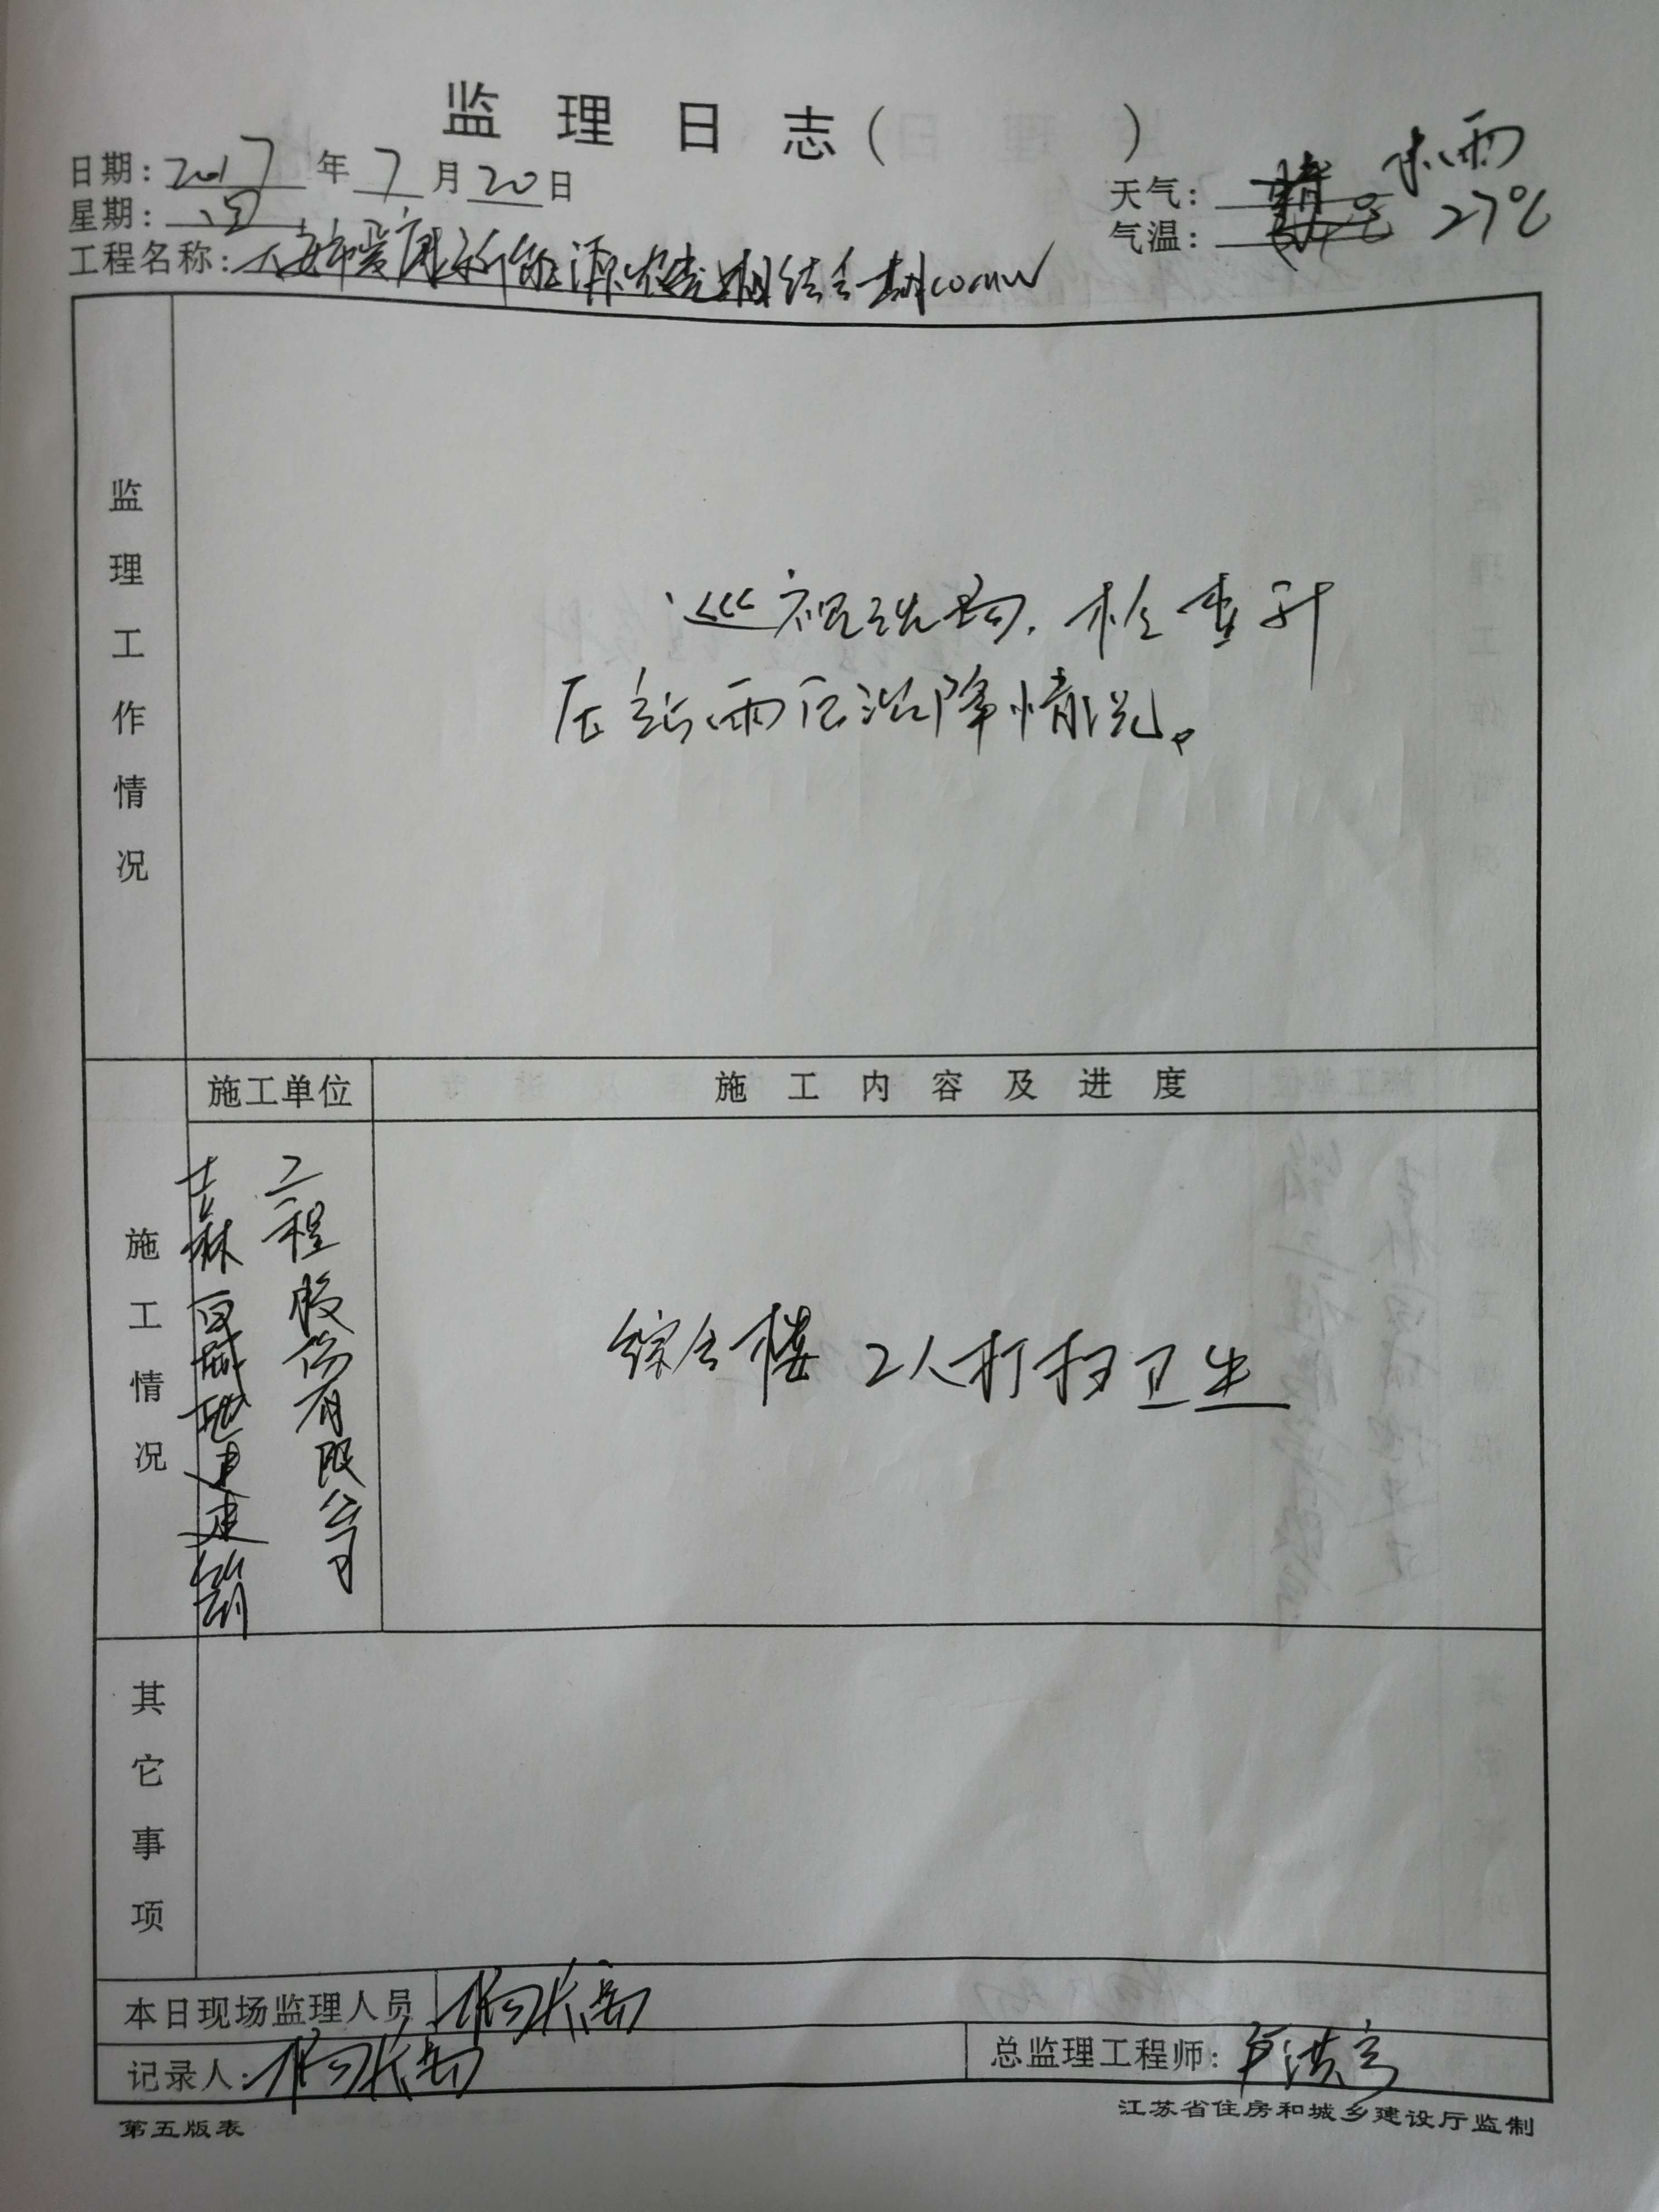 监理日志( )
日期: 2017 年 7 月 20 日
天气: 小雨
星期: 四
气温: 27℃
工程名称: 大安市爱康新能源农光相结合一期
监理工作情况
巡视现场.检查升
压站雨后沉降情况。
施工单位
施工内容及进度
施工情况
吉林白城地建建筑
工程股份有限公司
综合楼 2人打扫卫生
其它事项
本日现场监理人员 杨长岳
记录人: 杨长岳
总监理工程师: 卢洪亮
第五版表
江苏省住房和城乡建设厅监制